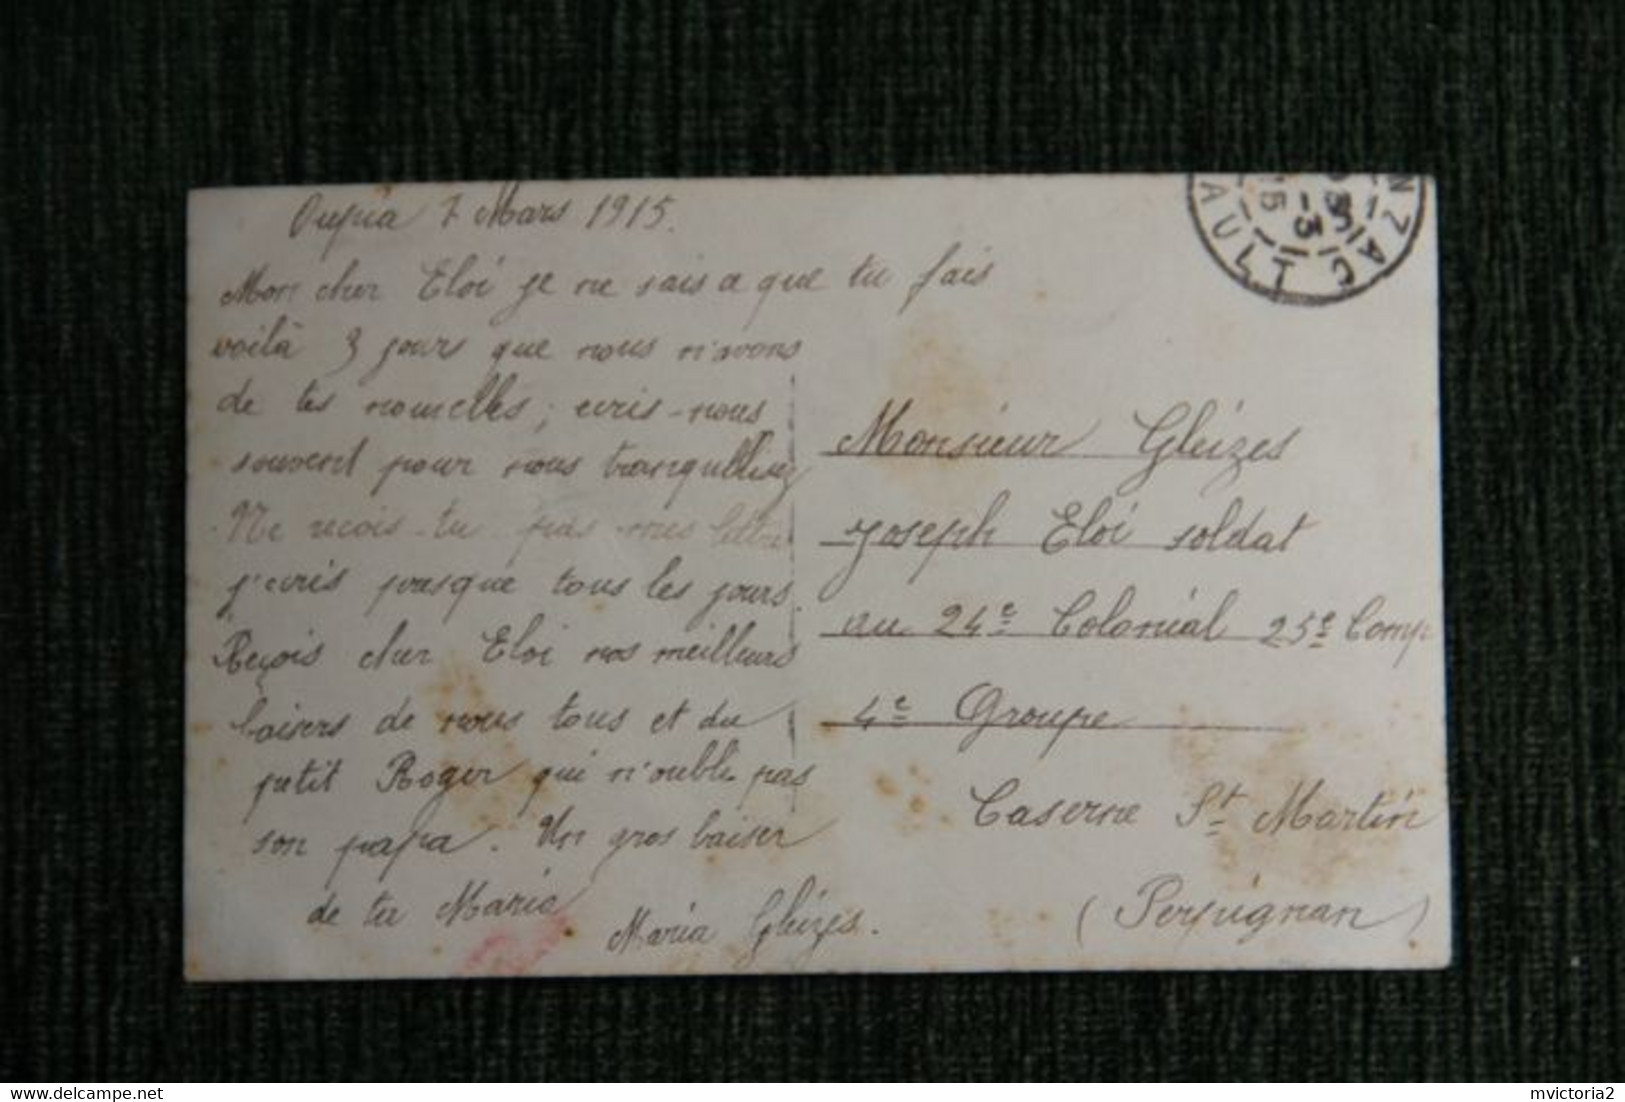 Oupia 7 Mars 1915.
Mon cher Eloi je ne sais a que tu fais
voilà 3 jours que nous n'avons
de tes nouvelles, ecris-nous
souvent pour nous tranquilliser
Ne reçois-tu pas mes lettres
j'ecris presque tous les jours.
Reçois cher Eloi nos meilleurs
baisers de nous tous et du
petit Roger qui n'oublie pas
son papa. Un gros baiser
de ta Maria
Maria Gleizes.
NZAC
AULT
15
3
Monsieur Gleizes
Joseph Eloi soldat
au 24e Colonial 25e Comp
4e Groupe
Caserne St Martin
(Perpignan)
mvictoria2